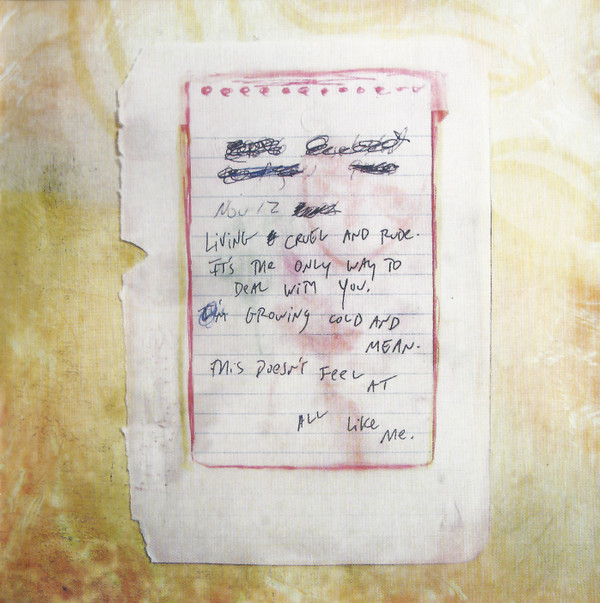 Nov 12
LIVING & CRUEL AND RUDE.
IT'S THE ONLY WAY TO
DEAL WITH YOU.
I'M GROWING COLD AND
MEAN.
THIS DOESN'T FEEL AT
ALL LIKE ME.